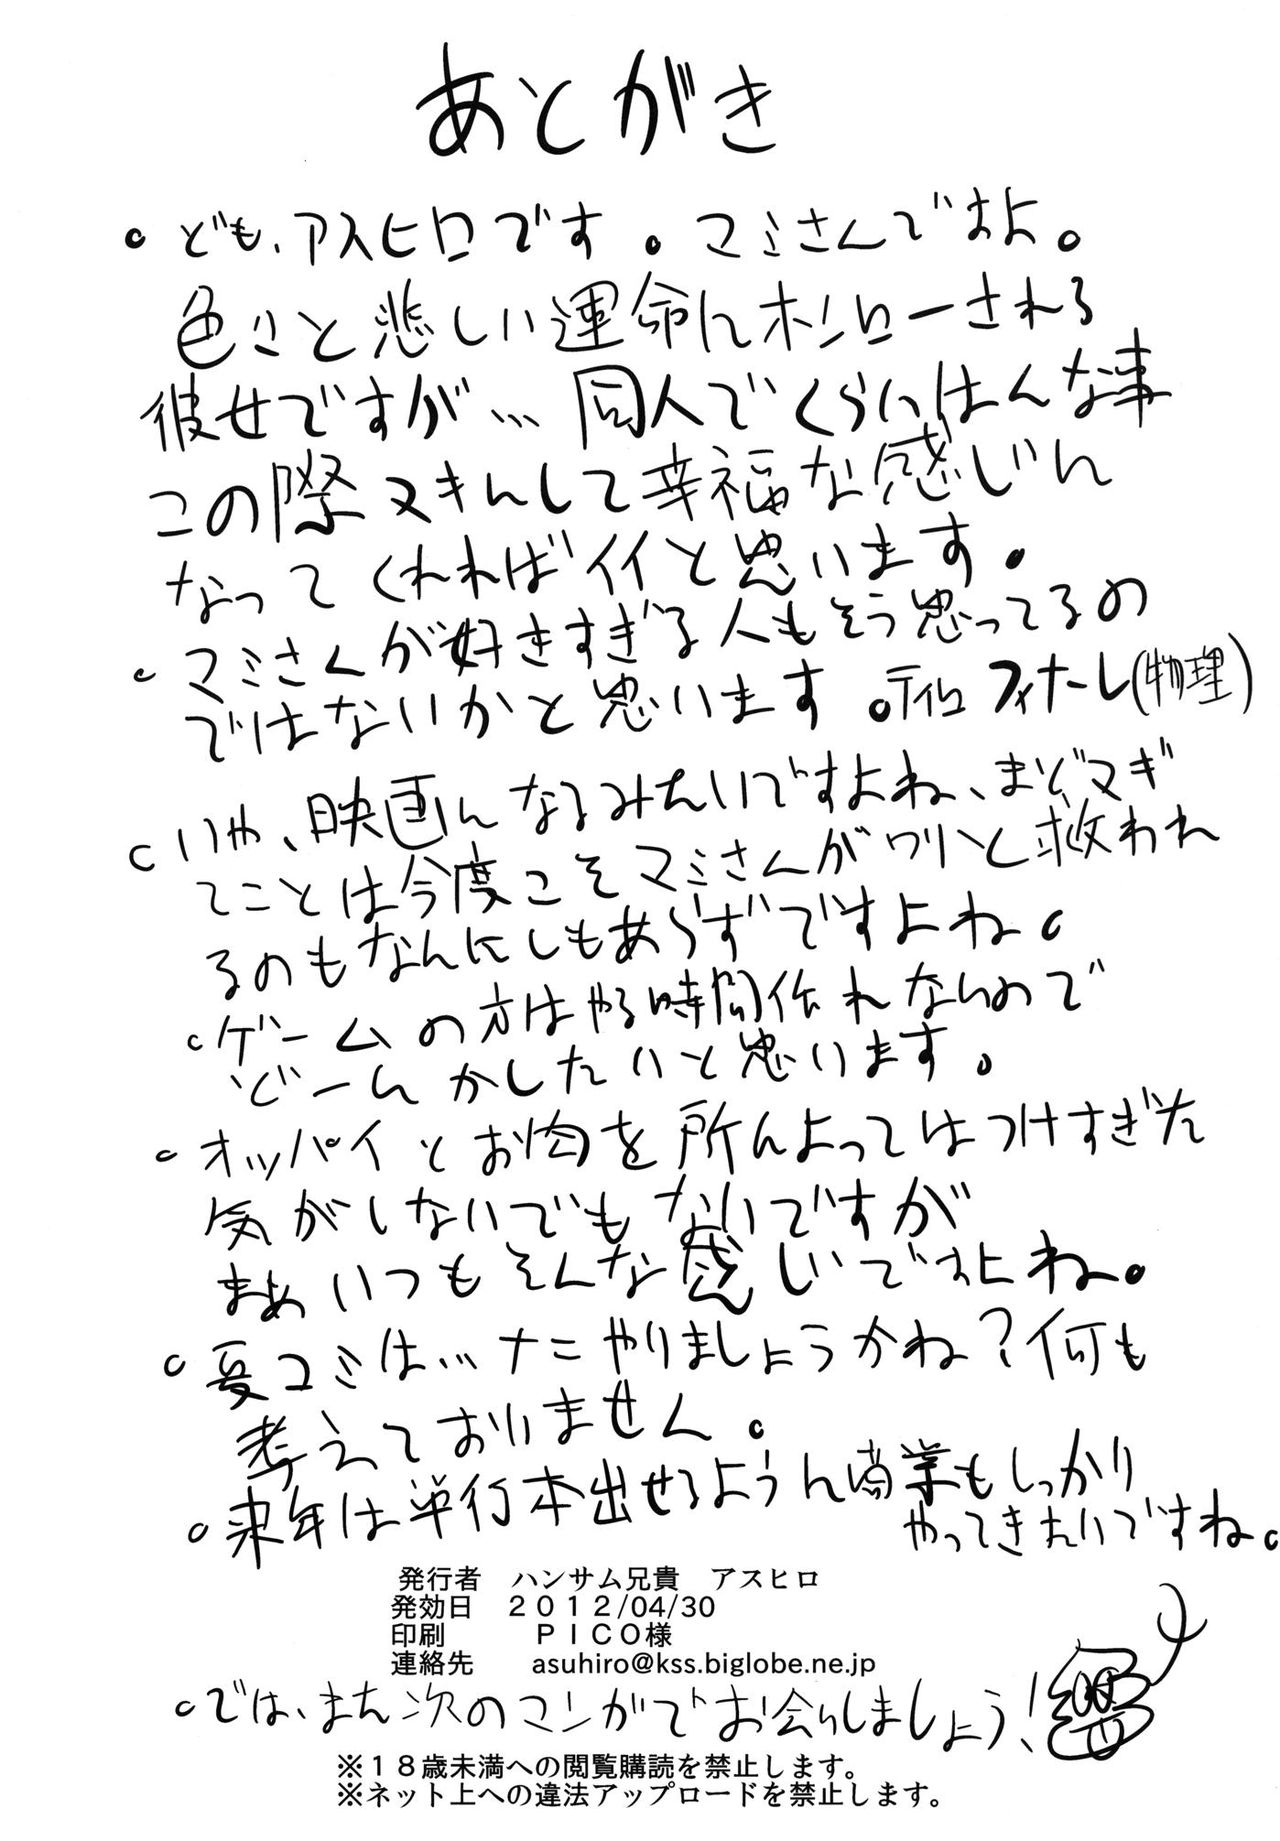 あとがき
。ども、アスヒロです。マミさんですよ。
色々と悲しい運命にホンローされる
彼女ですが… 同人でくらいはんな事
この際ヌキにして幸福な感じに
なってくれればイイと思います。
。マミさんが好きすぎる人もそう思ってるの
ではないかと思います。ティロフィナーレ(物理)
。いや、映画になるみたいですよね、まどマギ
てことは今度こそマミさんがワリと救われ
るのもなんにしもあらずですよね。
。ゲームの方はやる時間作れないので
どーにかしたいと思います。
。オッパイとお肉を所によってはつけすぎた
気がしないでもないですが
まぁいつもそんな感じですよね。
。夏コミは…ナニやりましょうかね?何も
考えておりません。
。来年は単行本出せるように商業もしっかり
やってきたいですね。
発行者 ハンサム兄貴 アスヒロ
発効日 2012/04/30
印刷 PICO様
連絡先 asuhiro@kss.biglobe.ne.jp
。では、また次のマンガでお会いしましょう!
※18歳未満への閲覧購読を禁止します。
※ネット上への違法アップロードを禁止します。